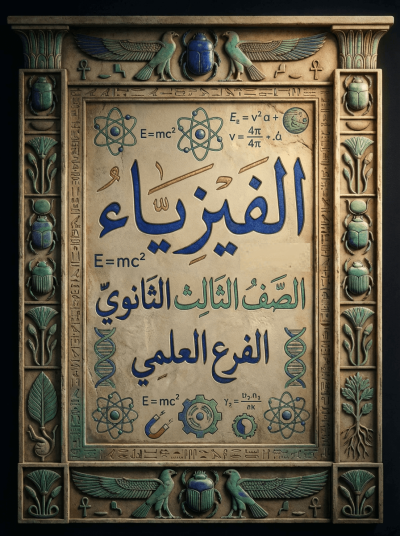 E=mc²
v = 4π/4π
الفيزياء
E=mc²
الصَّفُ الثَالِث الثَانويّ
الفرع العلمي
E=mc²